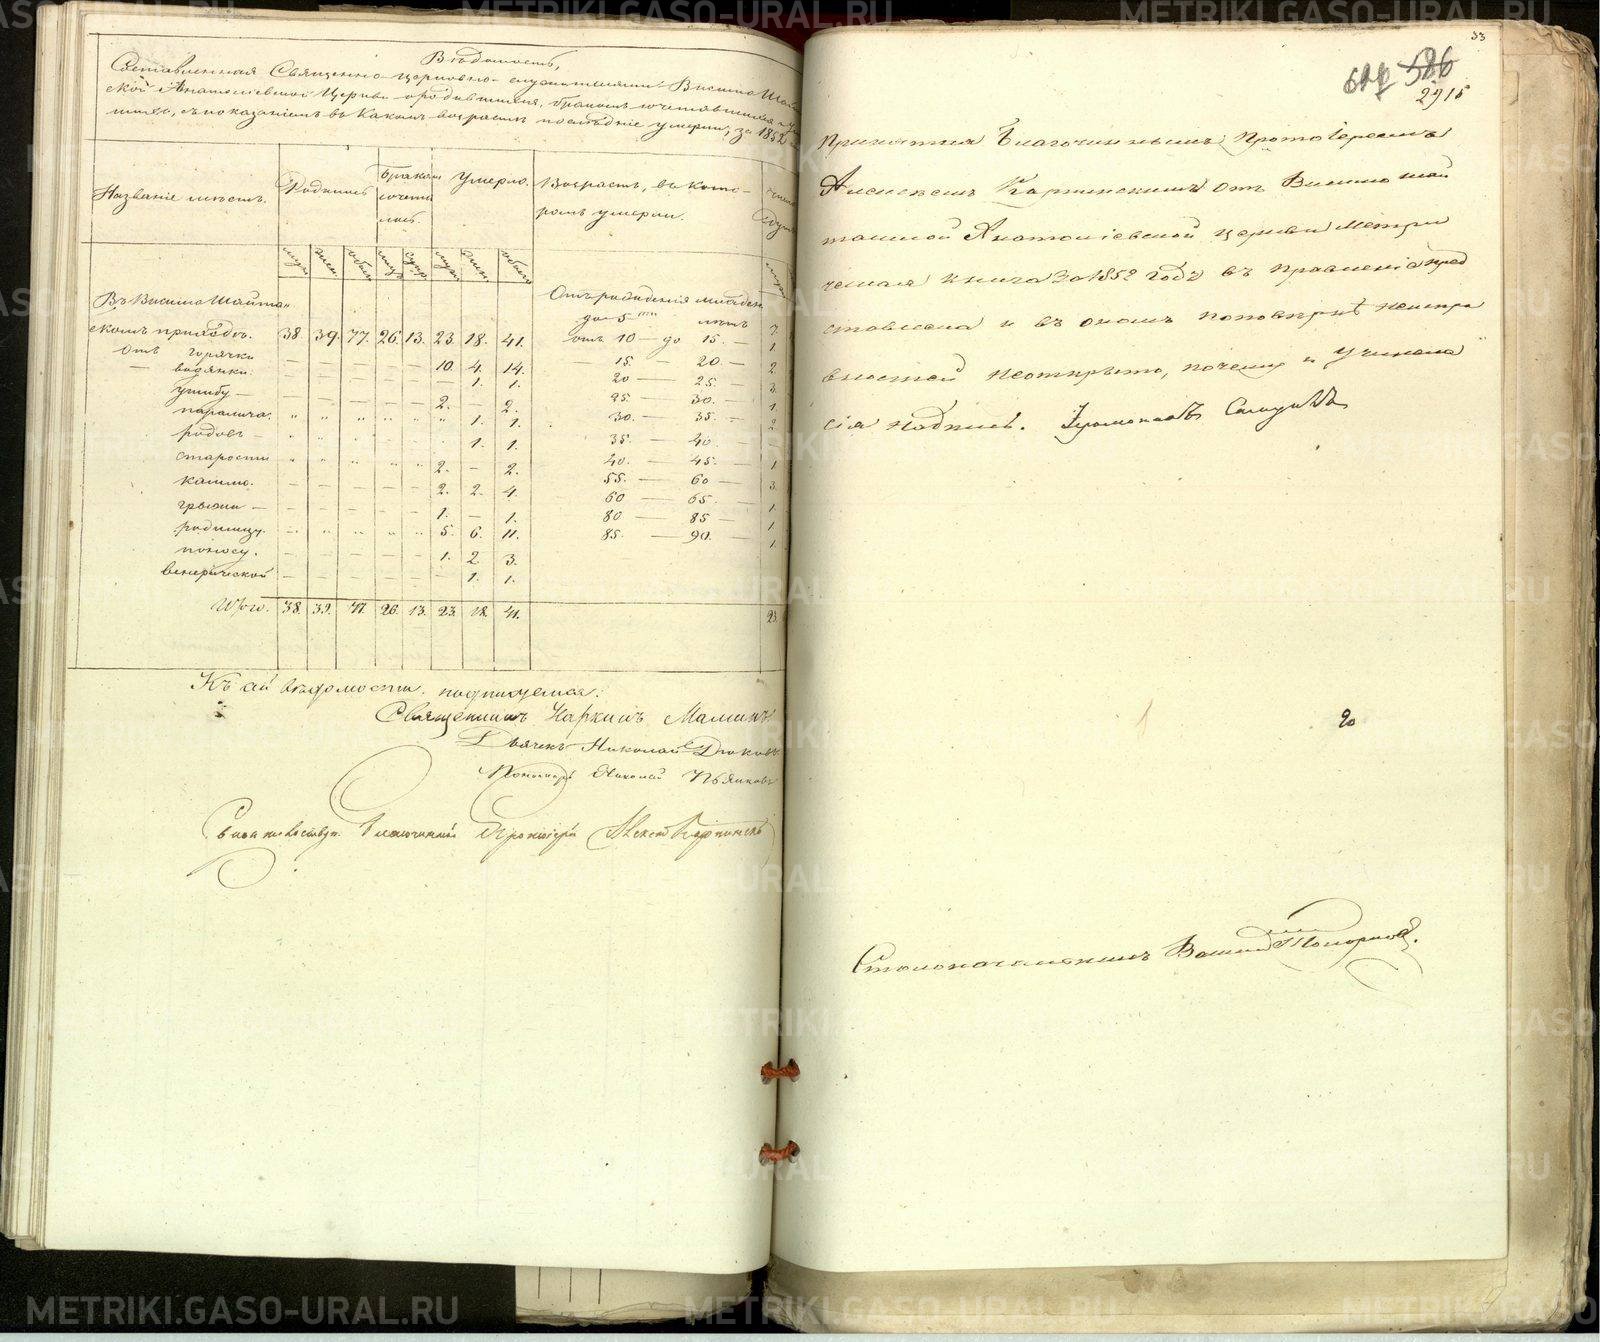 Вѣдомость,
Составленная Священно-церковно-служителями Висимо Шай
ской Анатоліевской Церкви о родившихся, бракомъ сочетавшихся и у
шихъ, съ показаніемъ въ какомъ возрастѣ послѣдніе умерли, за 1852
Названіе мѣстъ. Родились Бракомъ сочета лись. Умерло. Возрастъ, въ кото- ромъ умерли. число душъ
муж. жен. обоего муж. жен. обоего
Въ Висимо Шайтан-
скомъ приходѣ. 38. 39. 77. 26. 13. 23. 18. 41.
Отъ горячки 10. 4. 14.
— водянки. — — — — — — 1. 1.
ушибу — — — — — — 2. — 2.
паралича. " " " " " " 1. 1.
родовъ — 1. 1.
старости " " " " " 2. — 2.
кашлю. — — — — — 2. 2. 4.
грыжи — — — — — — 1. — 1.
родимцу. " " " " " 5. 6. 11.
поносу. — — — — — 1. 2 3.
венерической — — — — — — 1. 1.
Итого. 38. 39. 77. 26. 13. 23. 18. 41.
Отъ рожденія младен.
до 5ти лѣтъ 7.
отъ 10 — до 15. — 1.
15 — 20 — 2.
20 — 25 — 3.
25 — 30. — 1.
30 — 35. — 2
35. — 40.
40. — 45. — 1
55. — 60 — 3.
60 — 65. — 1.
80 — 85 — 1.
85. — 90. — 1.
23.
Къ сей вѣдомости подписуемся:
Священникъ Наркисъ Маминъ
Дьячекъ Николай Дюковъ
Пономарь Николай Пьянковъ
Благочинный Протоіерей Алексѣй Карпинскій
33
586
2915
Принятая Благочиннымъ Протоіереемъ
Алексѣемъ Карпинскимъ отъ Висимо шай
танской Анатоліевской церкви Метри
ческая книга за 1852 годъ въ Правленіе пред
ставлена и въ оной по повѣркѣ неиспра
вностей неоткрыто, почему и учинена
сія надпись.
20
Столоначальникъ
METRIKI.GASO-URAL.RU